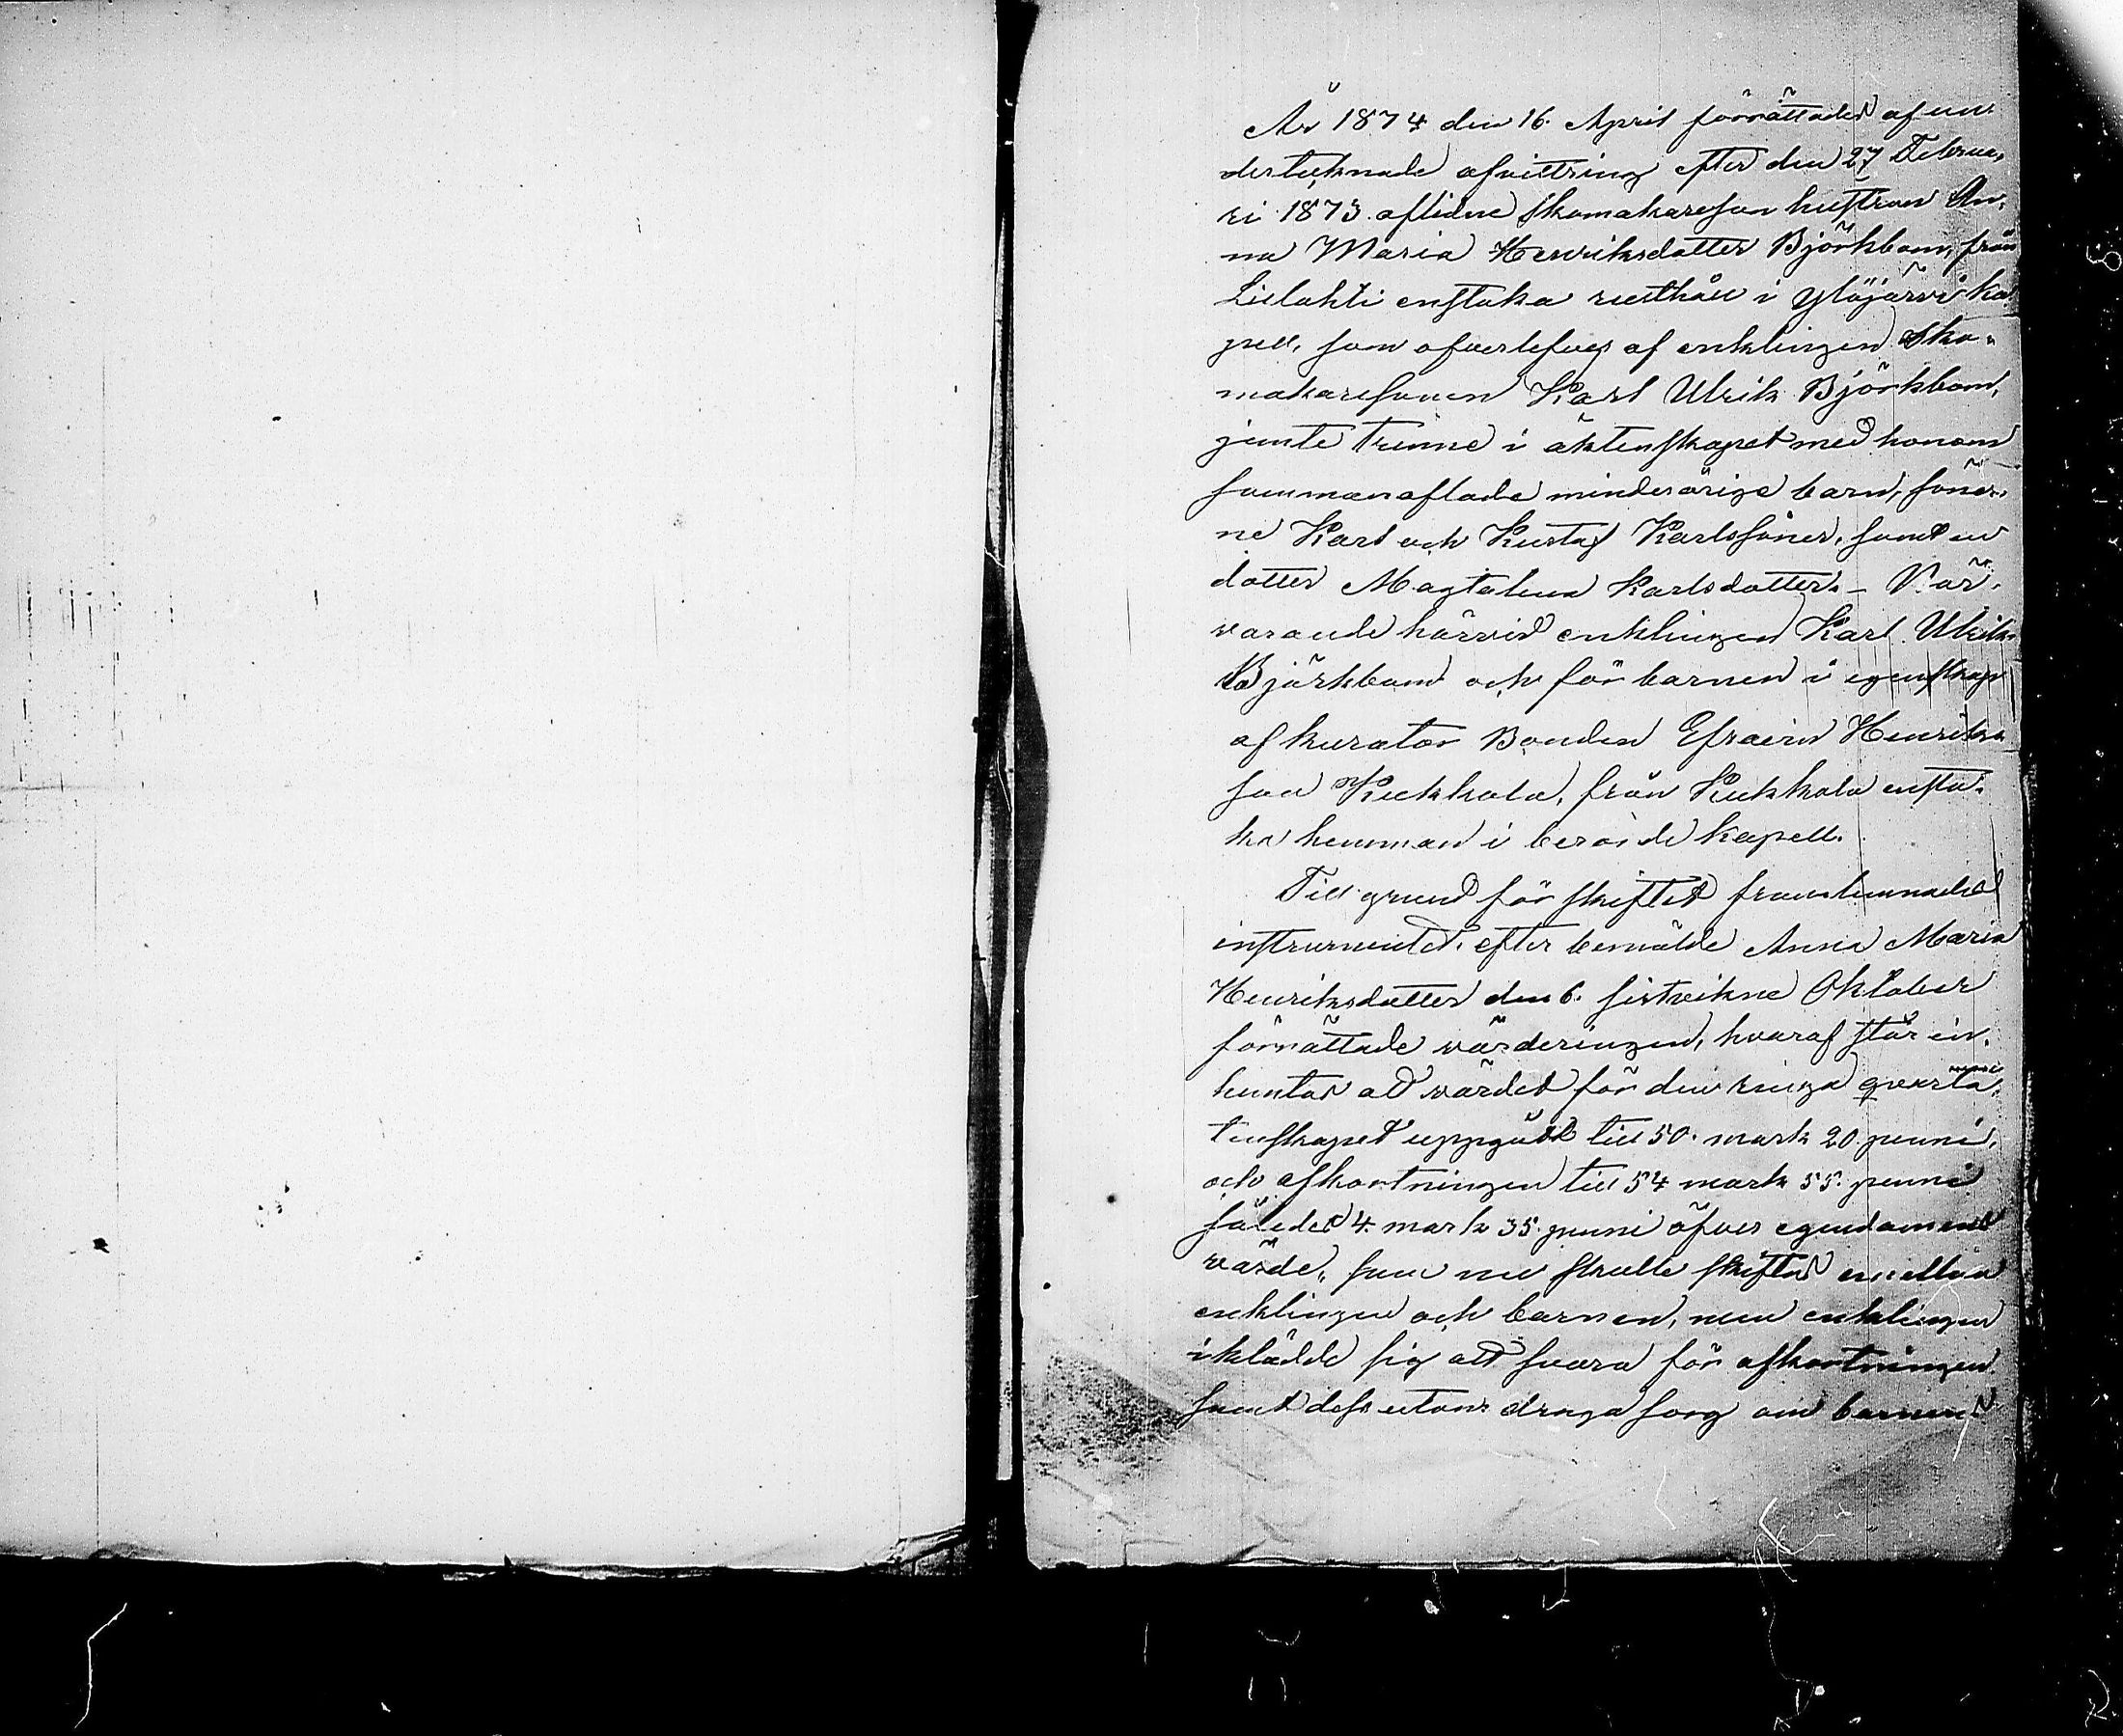 År 1874 den 16. April förrättades af un-
dertecknade afvittring efter den 27 Februa-
ri 1873. aflidne skomakareson hustrun An-
na Maria Henriksdotter Björkbom, från
Lielahti enstaka rusthåll i Ylöjärvi ka-
pell, som öfverlefves af enklingen Sko-
makaresonen Karl Ulrik Björkbom,
jemte trenne i äktenskapet med honom
sammanaflade minderåriga barn, söner-
ne Karl och Kustaf Karlssöner, samt en
dotter Magtalena Karlsdotter. – När-
varande härvid enklingen Karl Ulrik
Björkbom och för barnen i egenskap
af kurator Bonden Efraim Henriks-
son Kuckkola, från Kuckkola ensta-
ka hemman i berörde kapell.
Till grund för skiftet framlemnades
instrumentet efter bemälde Anna Maria
Henriksdotter den 6. sistvikne Oktober
förrättade värderingen, hvaraf står in-
hemtas att värdet för den ringa qvarlå-
tenskapet uppgått till 50. mark 20 penni,
och afkortningen till 54 mark 55. penni
således 4. mark 35. penni öfver egendomens
värde, som nu skulle skiftas emellan
enklingen och barnen, men enklingen
iklädde sig att svara för afkortningen
samt dessutom draga sorg om barnens